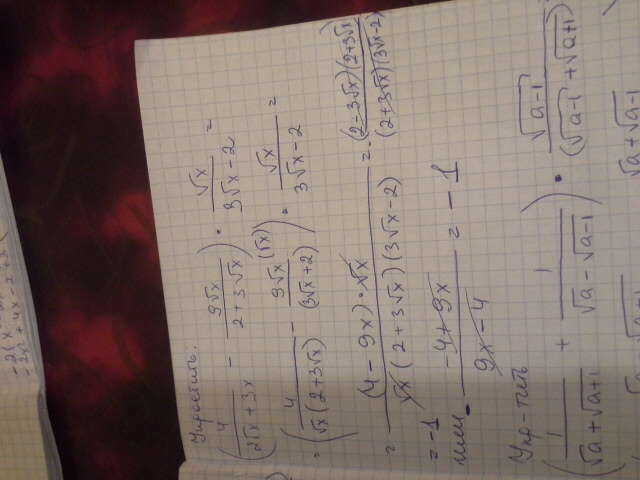 -2x² + 4x - 2 + 3
Упростить.
(4/(2√x + 3x) - 9√x/(2 + 3√x)) · √x/(3√x - 2) =
= (4/(√x(2 + 3√x)) - 9√x (√x)/(3√x + 2)) · √x/(3√x - 2) =
= (4 - 9x) · √x/(√x(2 + 3√x)(3√x - 2)) = (2 - 3√x)(2 + 3√x)/((2 + 3√x)(3√x - 2))
= -1
или (-4 + 9x)/(9x - 4) = -1
Упр-тить
(1/(√a + √(a+1)) + 1/(√a - √(a-1))) · √(a-1)/(√(a-1) + √(a+1))
√a + √(a-1)